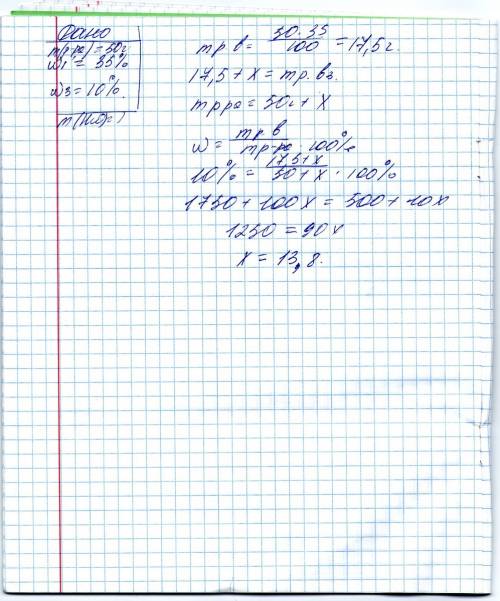 Дано
m(р-ра) = 50г
w1 = 35%
w3 = 10%.
m р в = 50 · 35 / 100 = 17,5 г.
17,5 + X = m р. в 2.
m р ра = 50г + X
w = m р в / m р-ра · 100%
10% = 17,5 + x / 50 + X · 100%
1750 + 100X = 500 + 10x
1250 = 90x
X = 13,8.